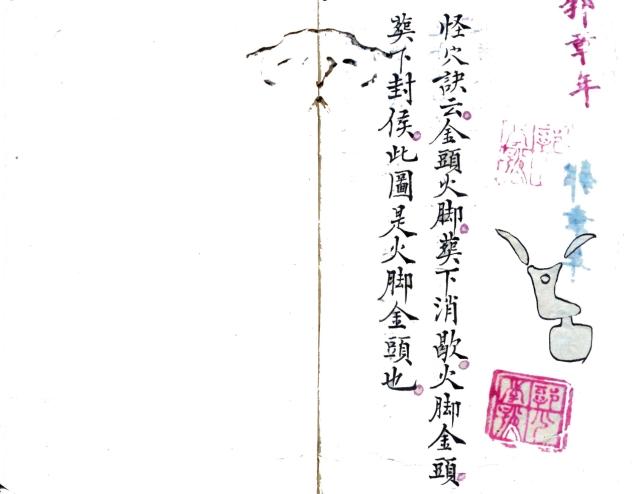 郭章年
怪穴訣云。金頭火脚。葬下消歇。火脚金頭。
葬下封侯。此圖是火脚金頭也。